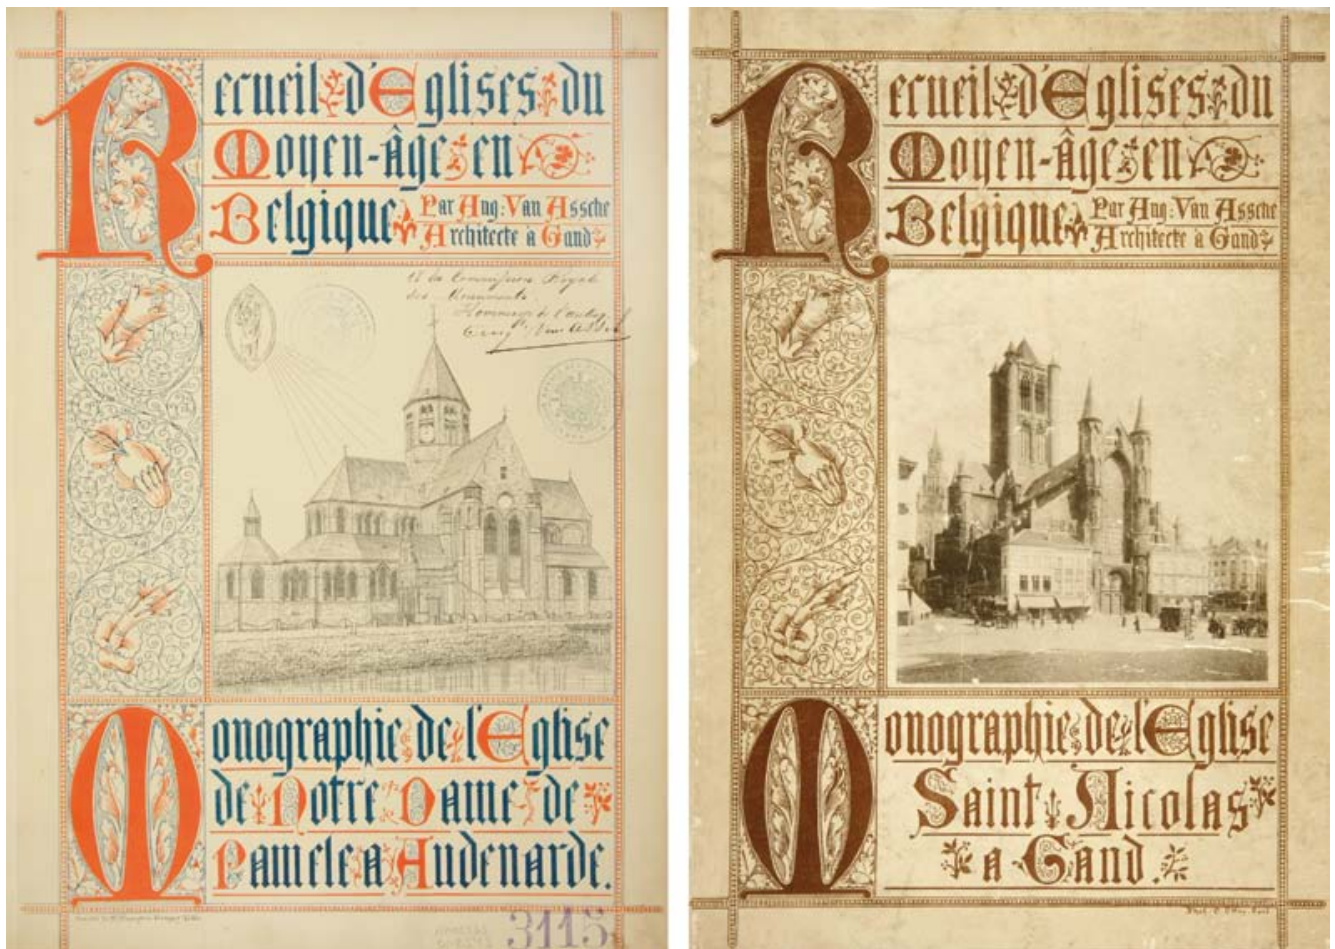 Recueil d'Eglises du
Moyen-âge en
Belgique Par Aug: Van Assche
Architecte à Gand
à la Commission Royale
des Monuments
Hommage de l'auteur
Monographie de l'Eglise
de Notre Dame de
Pamele a Audenarde.
3115
Recueil d'Eglises du
Moyen-âge en
Belgique Par Aug: Van Assche
Architecte à Gand
Monographie de l'Eglise
Saint Nicolas
a Gand.